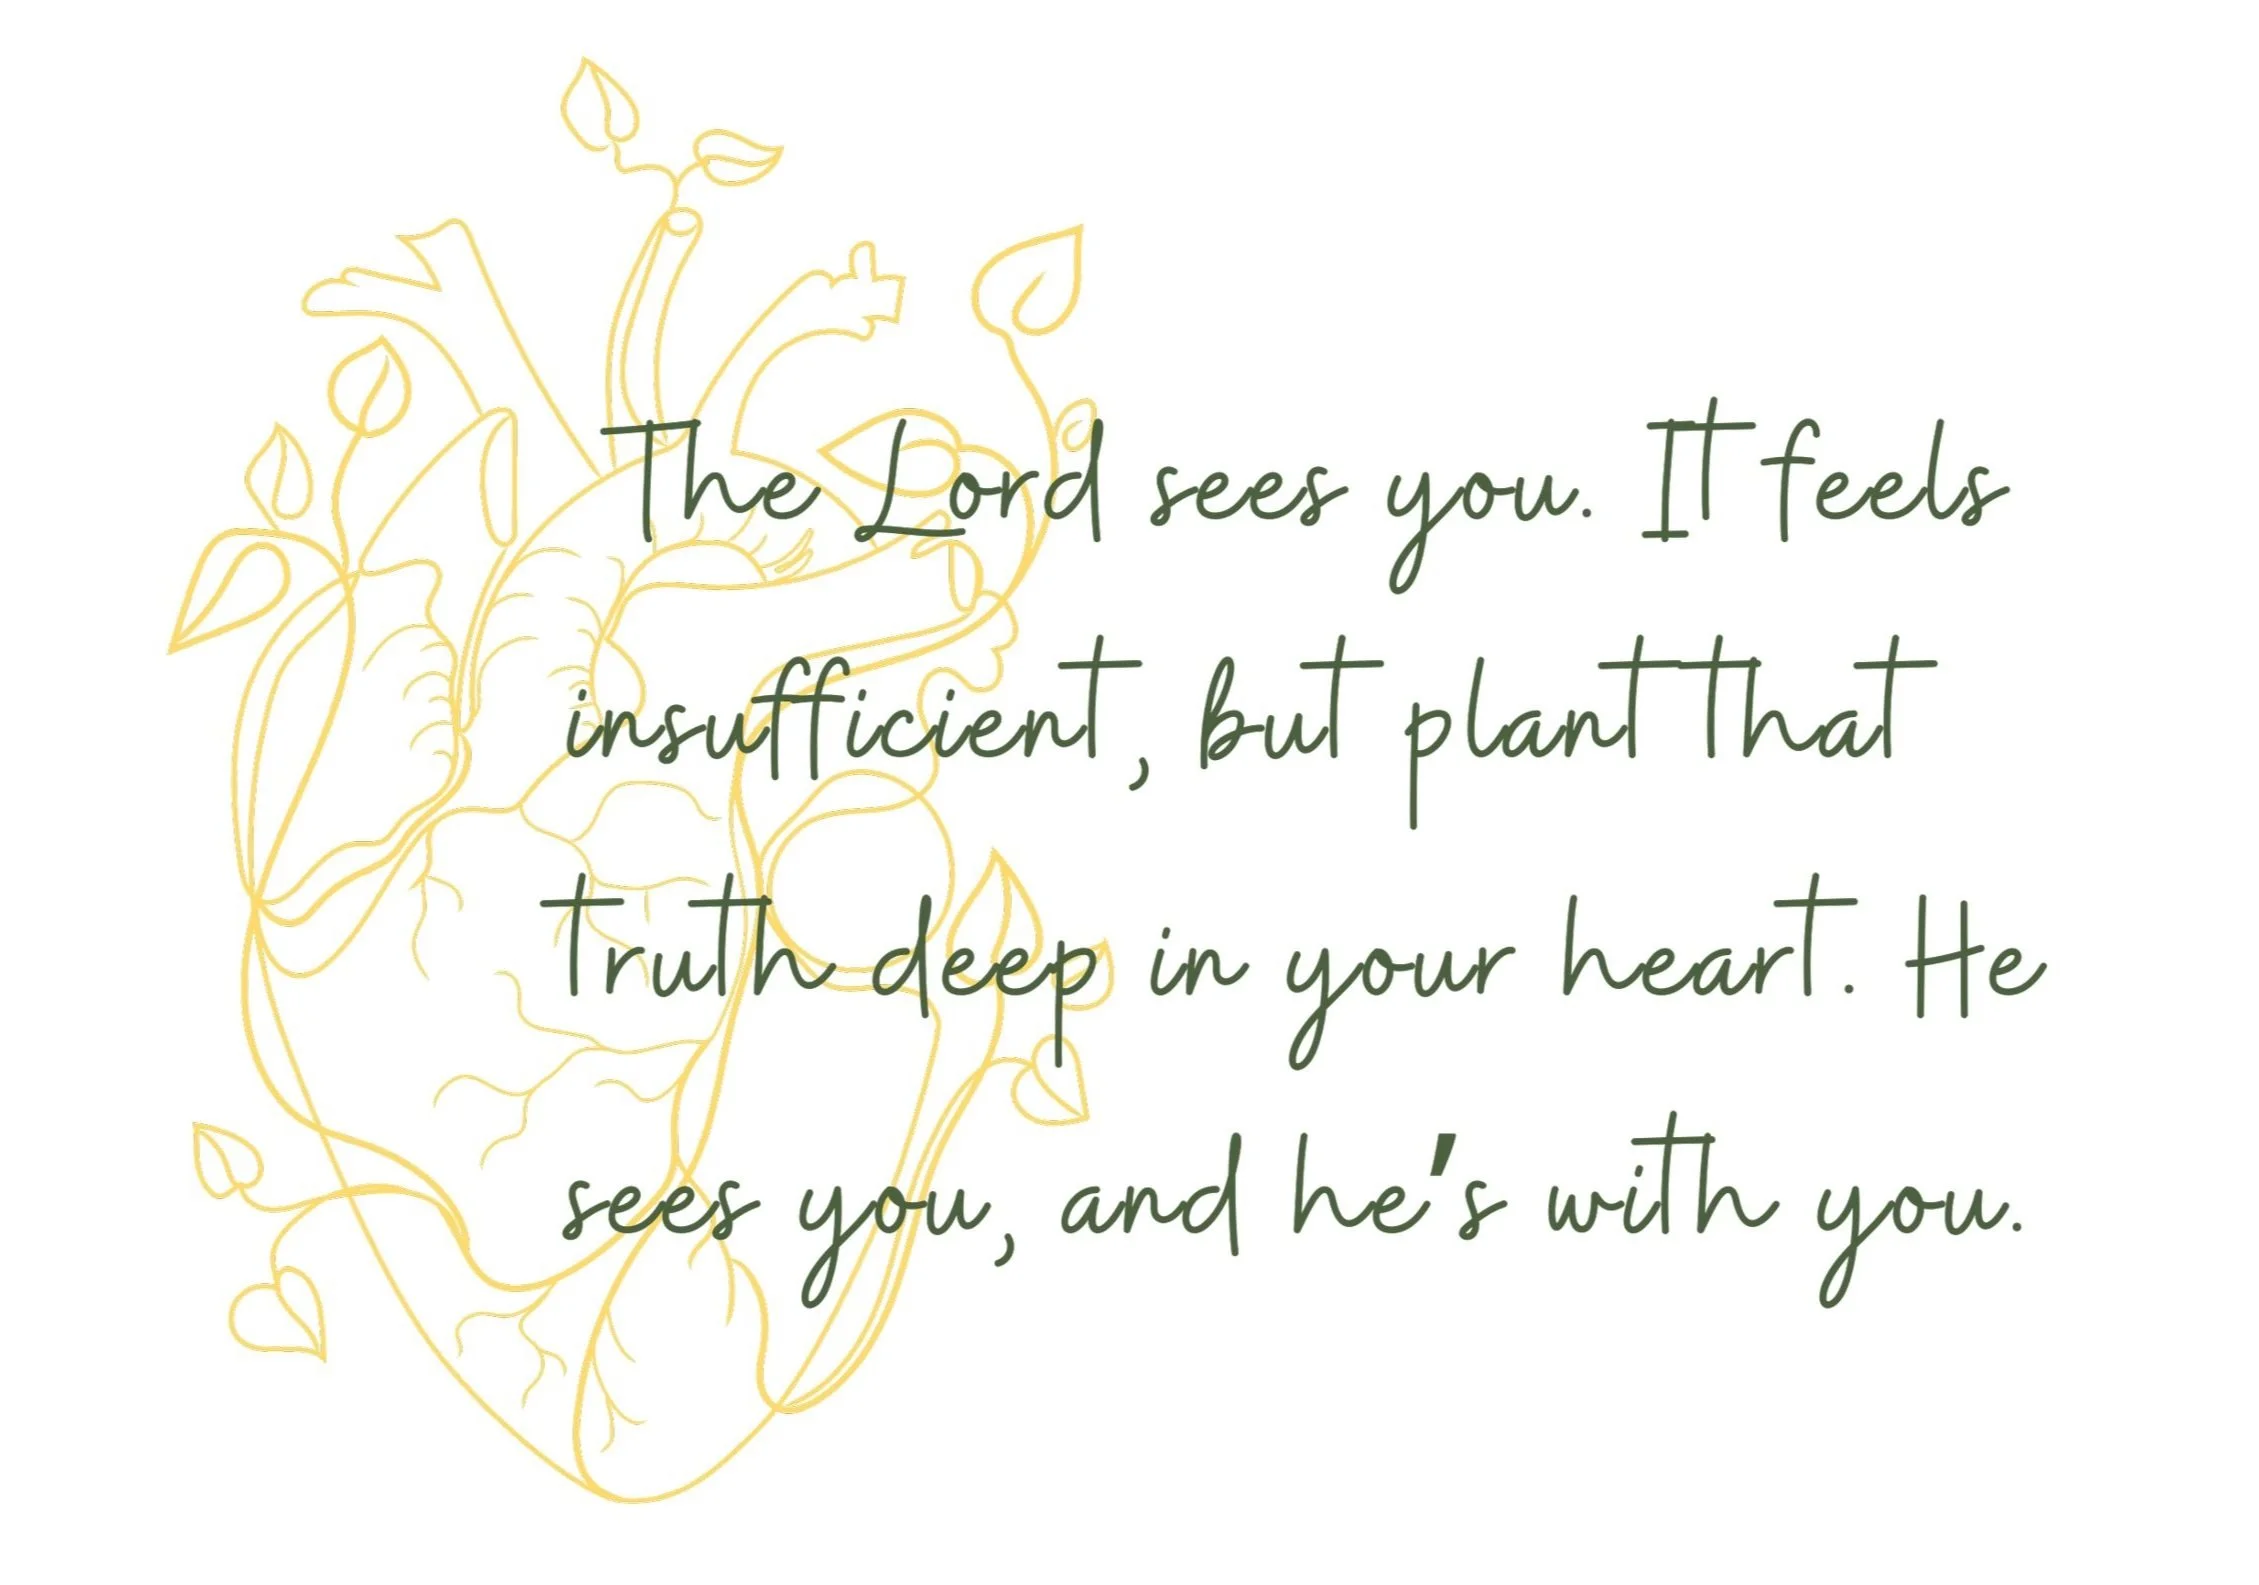 The Lord sees you. It feels
insufficient, but plant that
truth deep in your heart. He
sees you, and he's with you.